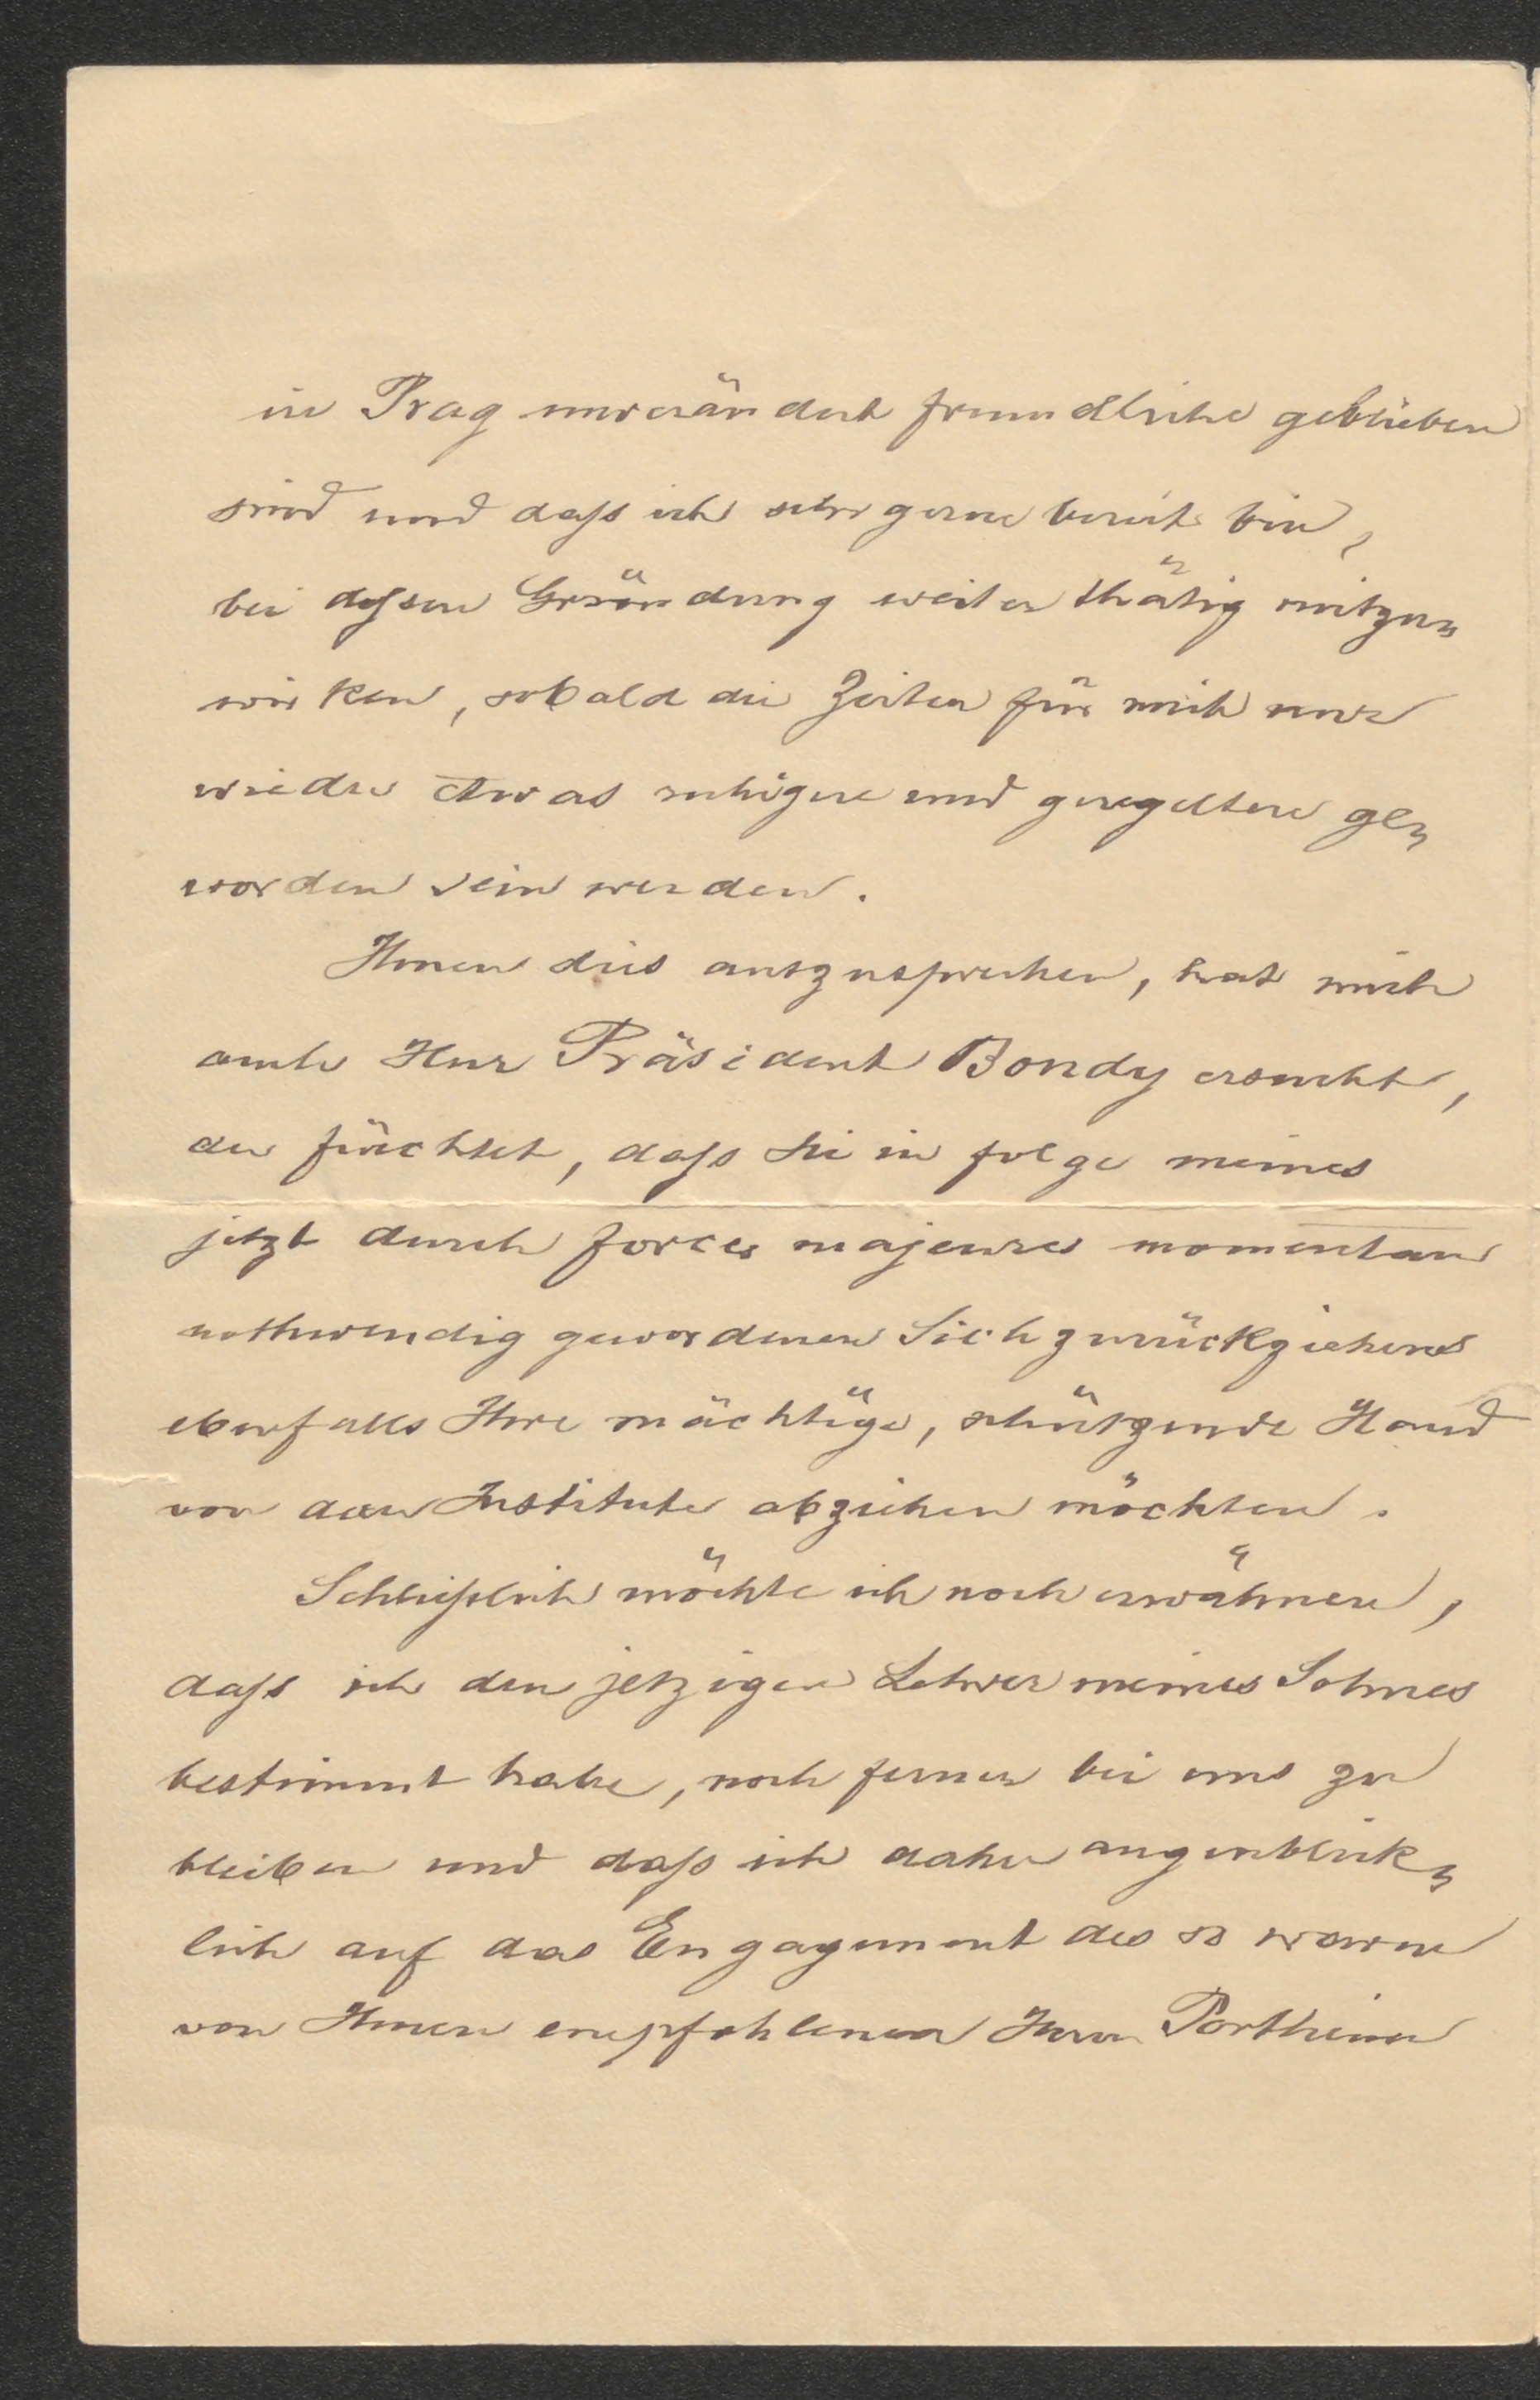 in Prag unverändert freundliche geblieben
sind und daſs ich sehr gerne bereit bin,
bei deſsen Gründung weiter thätig mitzu=
wirken, sobald die Zeiten für mich nur
wieder etwas ruhigere und geregeltere ge=
worden sein werden.
Ihnen dies auszusprechen, hat mich
auch Herr Präsident Bondy ersucht,
der fürchtet, daſs Sie in folge meines
jetzt durch forces majeures momentan
nothwendig gewordenen Sichzurückziehens
ebenfalls Ihre mächtige, schützende Hand
von dem Institute abziehen möchten.
Schlieſslich möchte ich noch erwähnen,
daſs ich den jetzigen Lehrer meines Sohnes
bestimmt habe, noch ferner bei uns zu
bleiben und daſs ich daher augenblick=
lich auf das Engagement des so warm
von Ihnen empfohlenen Herrn Portheim